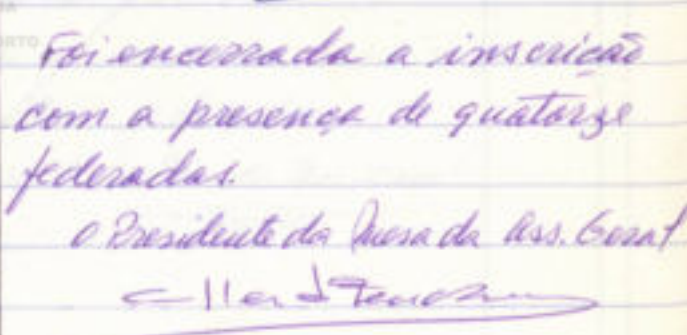 Foi encerrada a inscrição
com a presença de quatorze
federadas.
O Presidente da Mesa da Ass. Geral